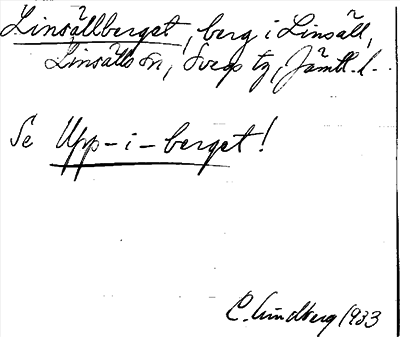 Linsällberget, berg i Linsäll,
Linsälls sn, Svegs tg, Jämtl. l.
Se Upp-i-berget!
C. Lindberg 1933